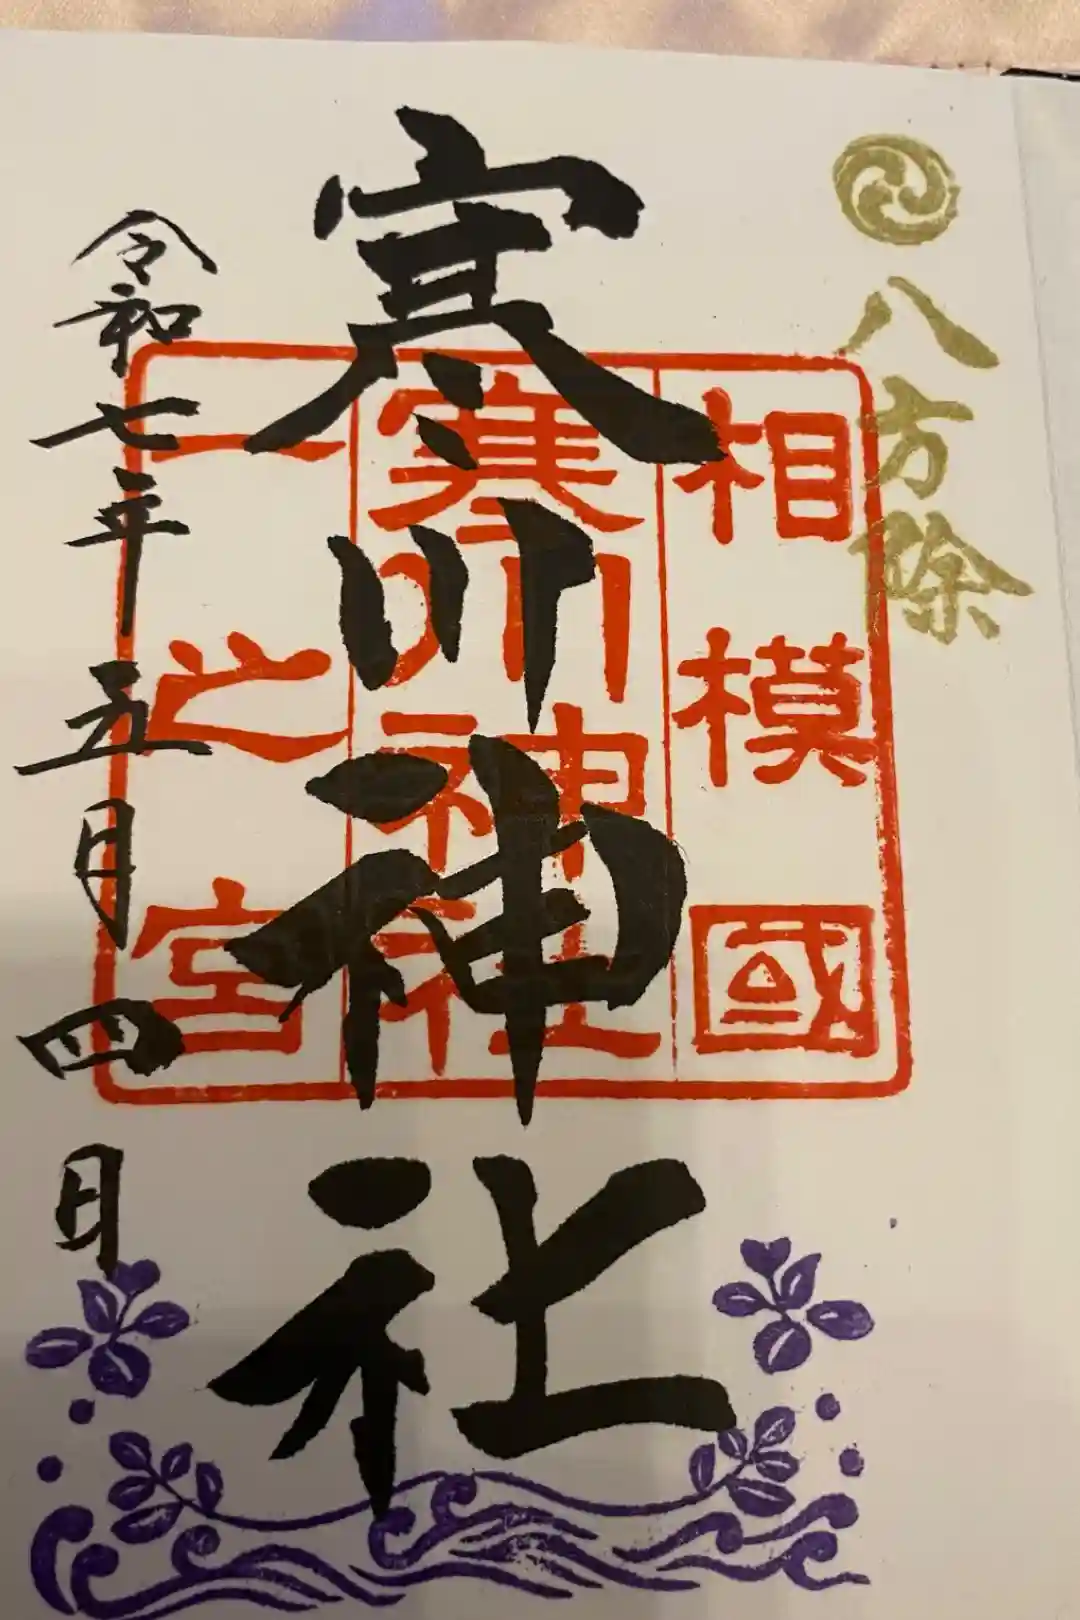 八方除
相模國
寒川神社
一之宮
寒川神社
令和七年五月四日